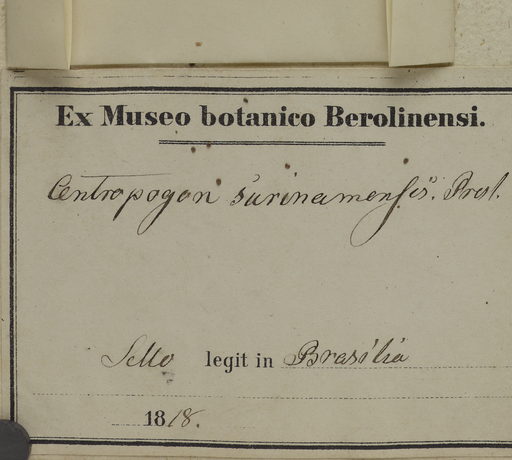 Ex Museo botanico Berolinensi.
Centropogon surinamensis. Presl.
Sello legit in Brasilia
1818.